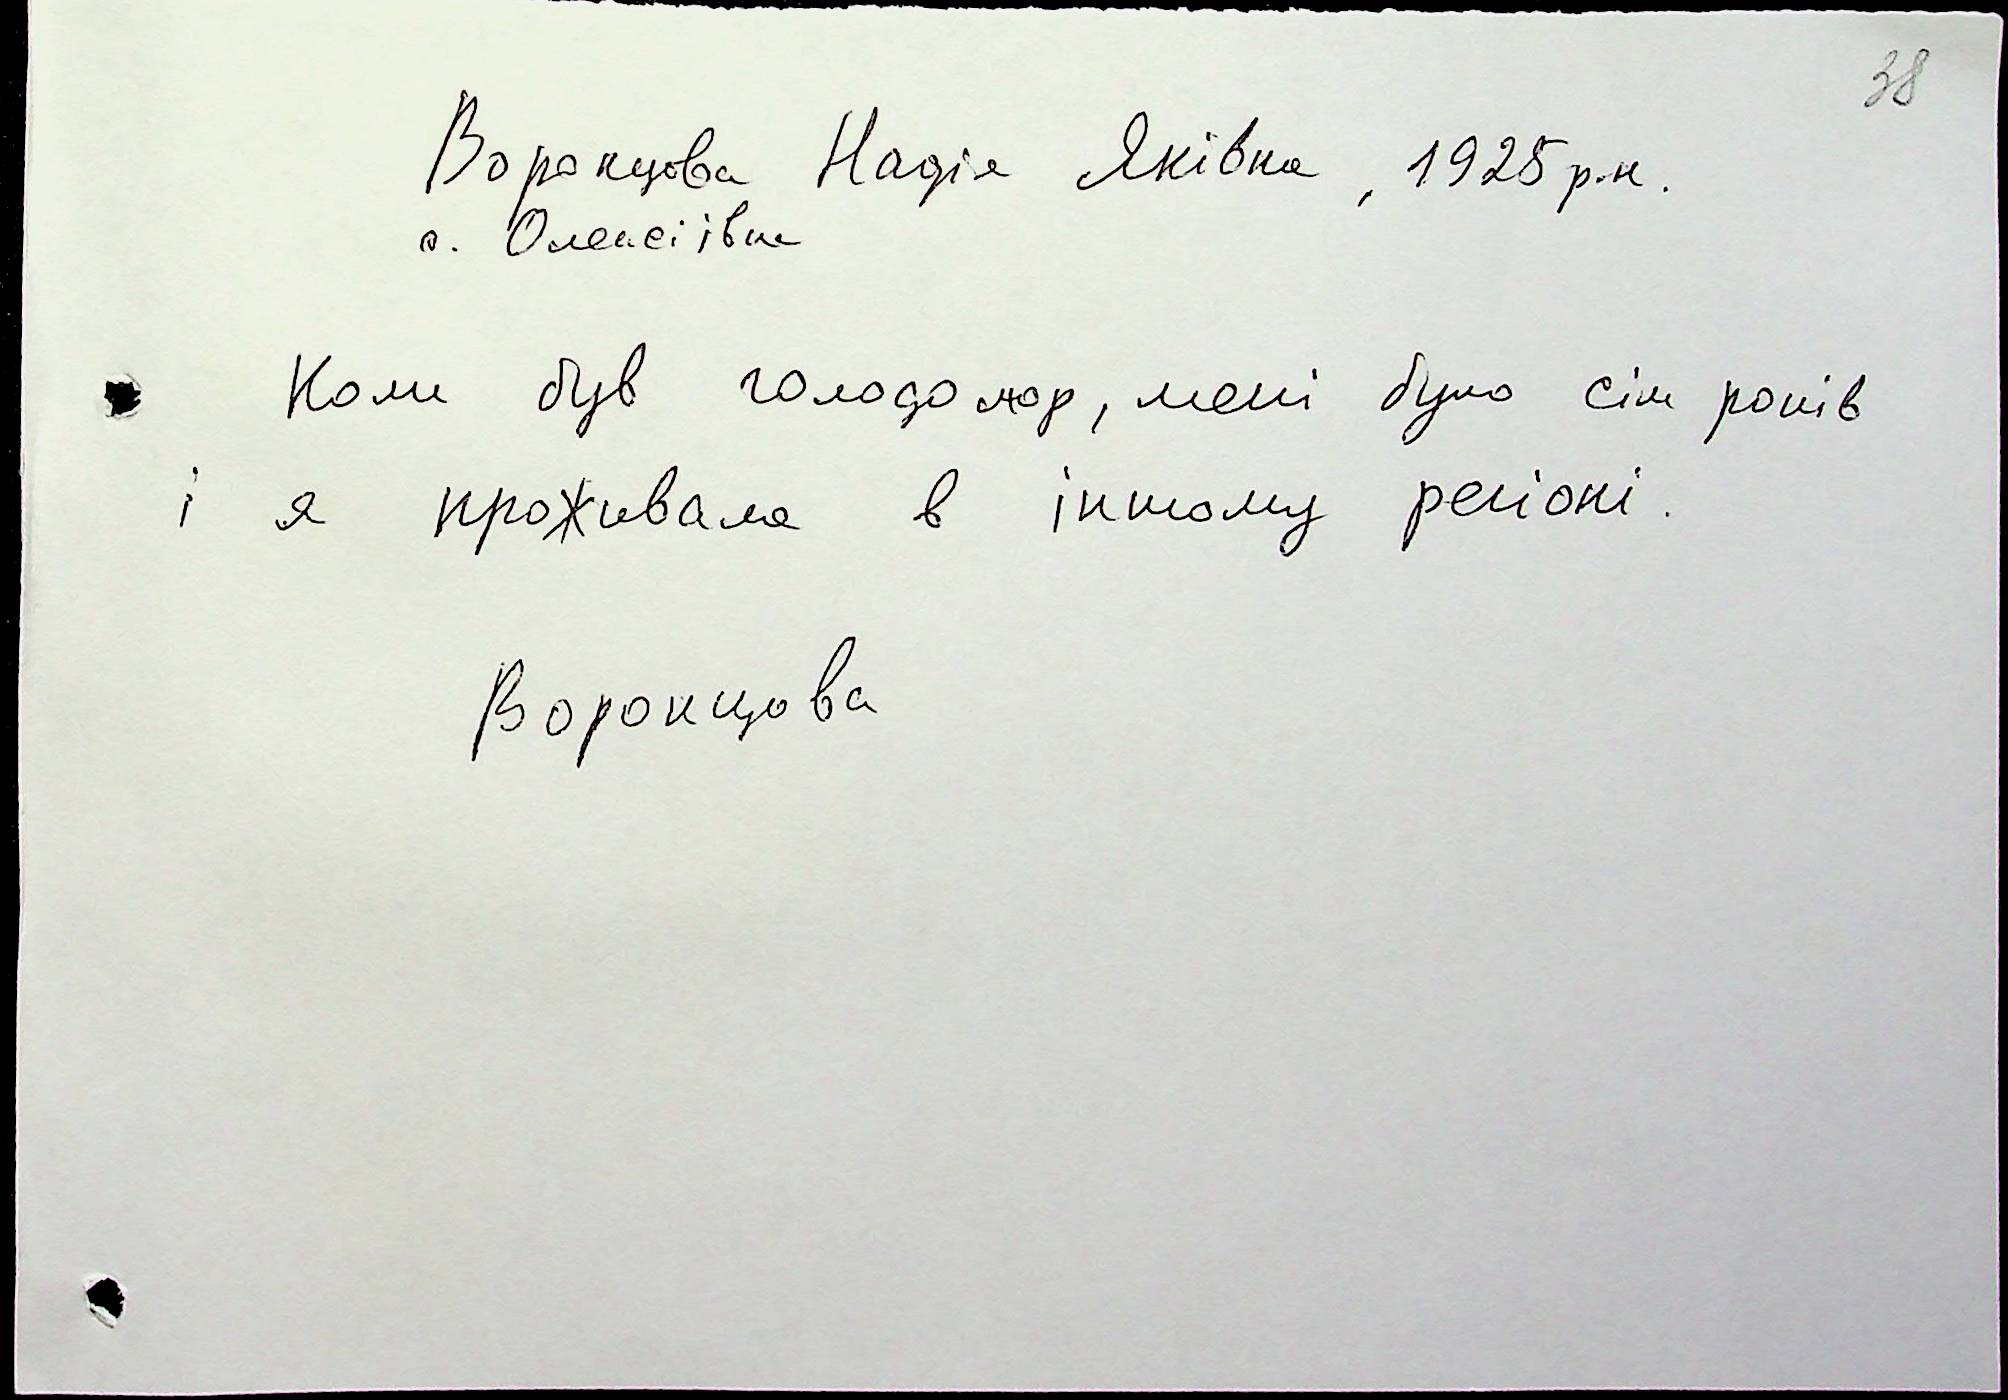 38
Воронцова Надія Яківна, 1925 р.н.
с. Олексіївка
Коли був голодомор, мені було сім років
і я проживала в іншому регіоні.
Воронцова